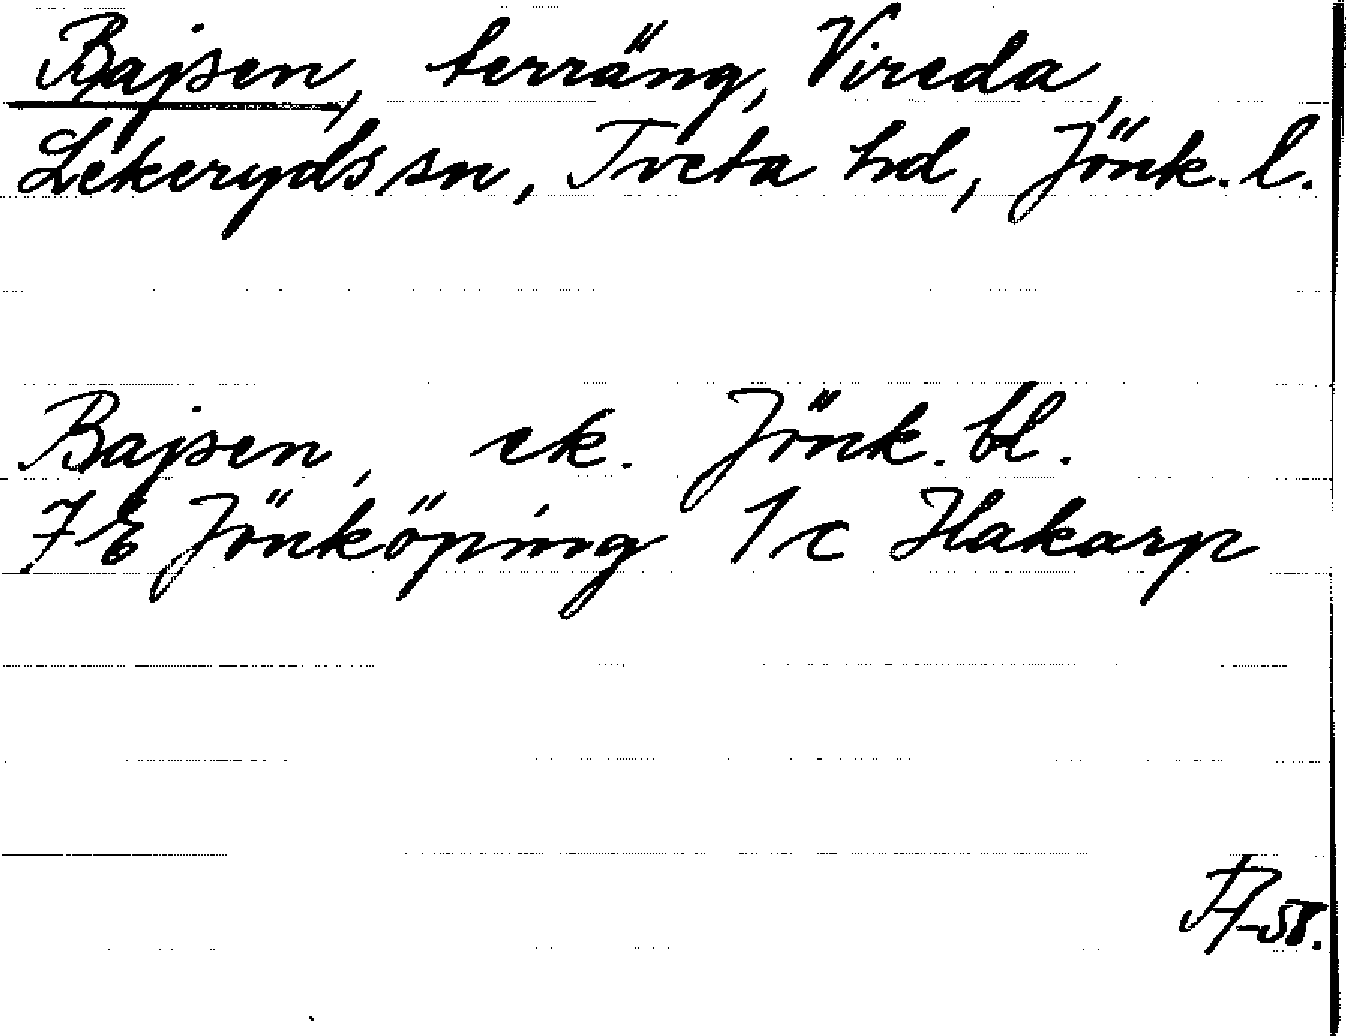 Bajsen, terräng, Vireda,
Lekeryds sn, Tveta hd, Jönk. l.
Bajsen, ek. Jönk. bl.
7E Jönköping 1c Hakarp
-58.